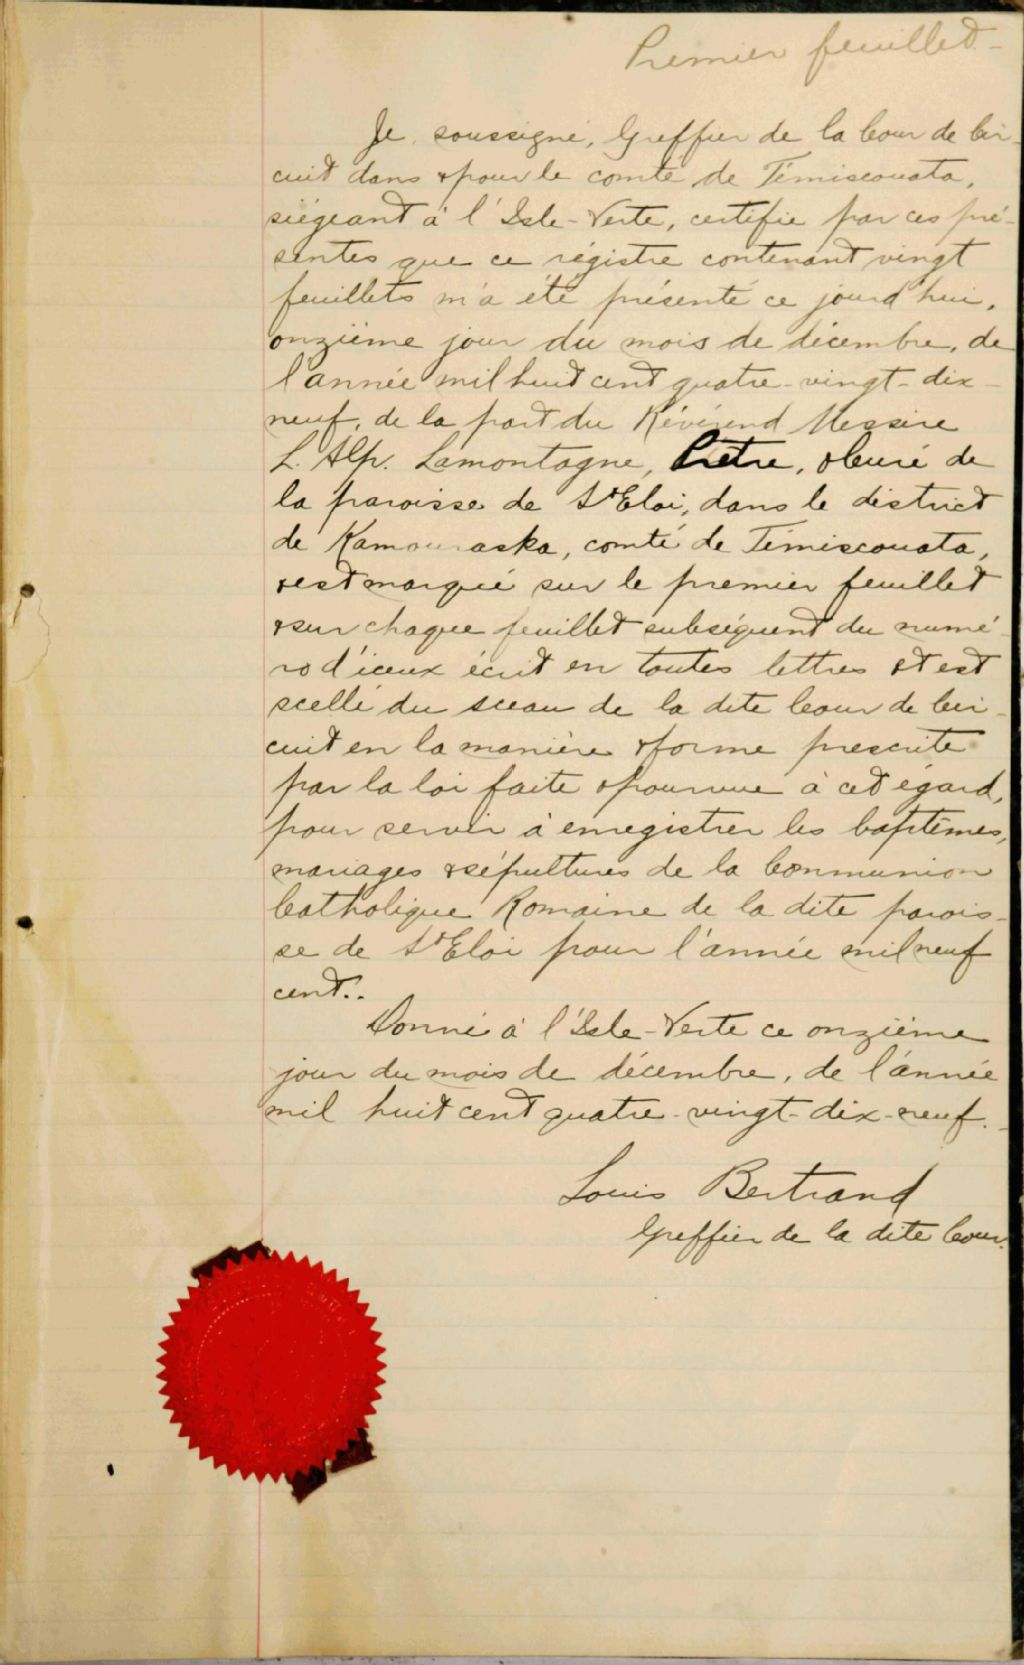 Premier feuillet -
Je, soussigné, Greffier de la Cour de Cir-
cuit dans & pour le comté de Témiscouata,
siégeant à l'Isle-Verte, certifie par ces pré-
sentes que ce régistre contenant vingt
feuillets m'a été présenté ce jourd'hui,
onzième jour du mois de décembre, de
l'année mil huit cent quatre-vingt-dix-
neuf, de la part du Révérend Messire
L. Alp. Lamontagne, Prêtre, & Curé de
la paroisse de St Eloi, dans le district
de Kamouraska, comté de Témiscouata,
& est marqué sur le premier feuillet
& sur chaque feuillet subséquent du numé-
ro d'iceux écrit en toutes lettres et est
scellé du sceau de la dite Cour de Cir-
cuit en la manière & forme prescrite
par la loi faite & pourvue à cet égard,
pour servir à enregistrer les baptêmes,
mariages & sépultures de la Communion
Catholique Romaine de la dite parois-
se de St Eloi pour l'année mil neuf
cent..
Donné à l'Isle-Verte ce onzième
jour du mois de décembre, de l'année
mil huit cent quatre-vingt-dix-neuf.-
Louis Bertrand
Greffier de la dite Cour.